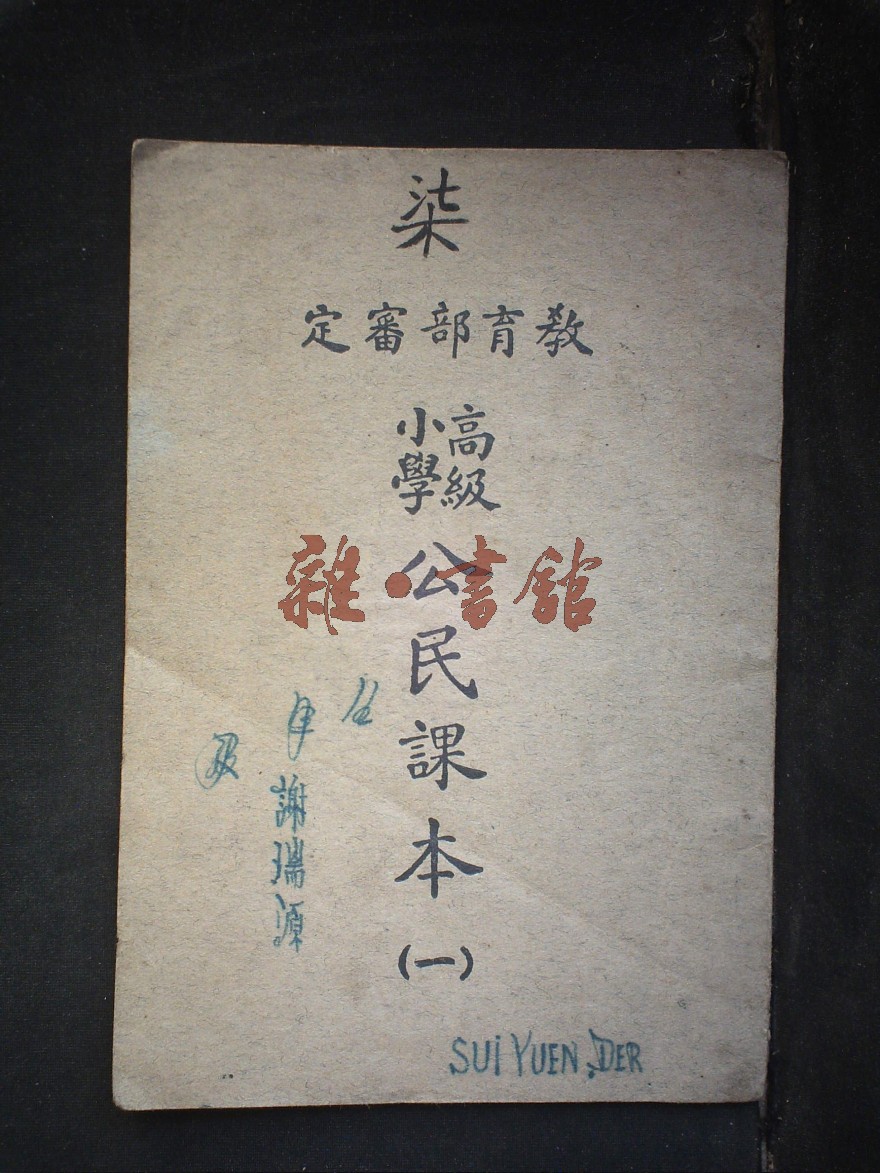 柒
教育部審定
高級
小學
公民課本(一)
雜·書館
年
級
謝瑞源
SUI YUEN DER